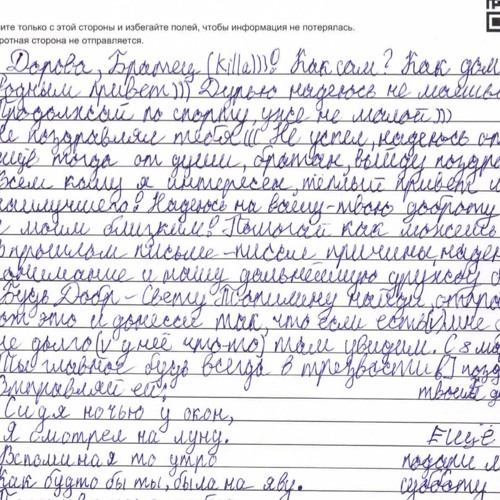 ите только с этой стороны и избегайте полей, чтобы информация не потерялась.
ротная сторона не отправляется.
Дарова, Братец (killa)))! Как сам? Как дом
родным привет))) Дурью надеюсь не маешь
Продолжай по спорту, уже не малой)))
не поздравлял тебя((( Не успел, надеюсь
от души, братан, выйду поздр
Всем кому я интересен, тёплый привет и
наилучшего! Надеюсь на твою доброту
с моим близким! Помогай как можешь
В прошлом письме причины, наде
понимание и нашу дальнейшую дружбу
Будь Добр - Свету найди
вот это и донеси так, что если есть(у) мне
не долго (у неё что-то) там увидим. С 8 ма
Ты главное будь всегда в трезвости позд
Отправляй ей: твоим
Сидя ночью у окон,
Я смотрел на луну. Ещё
Вспоминая то утро подари
Как будто бы ты, была на яву. свободу